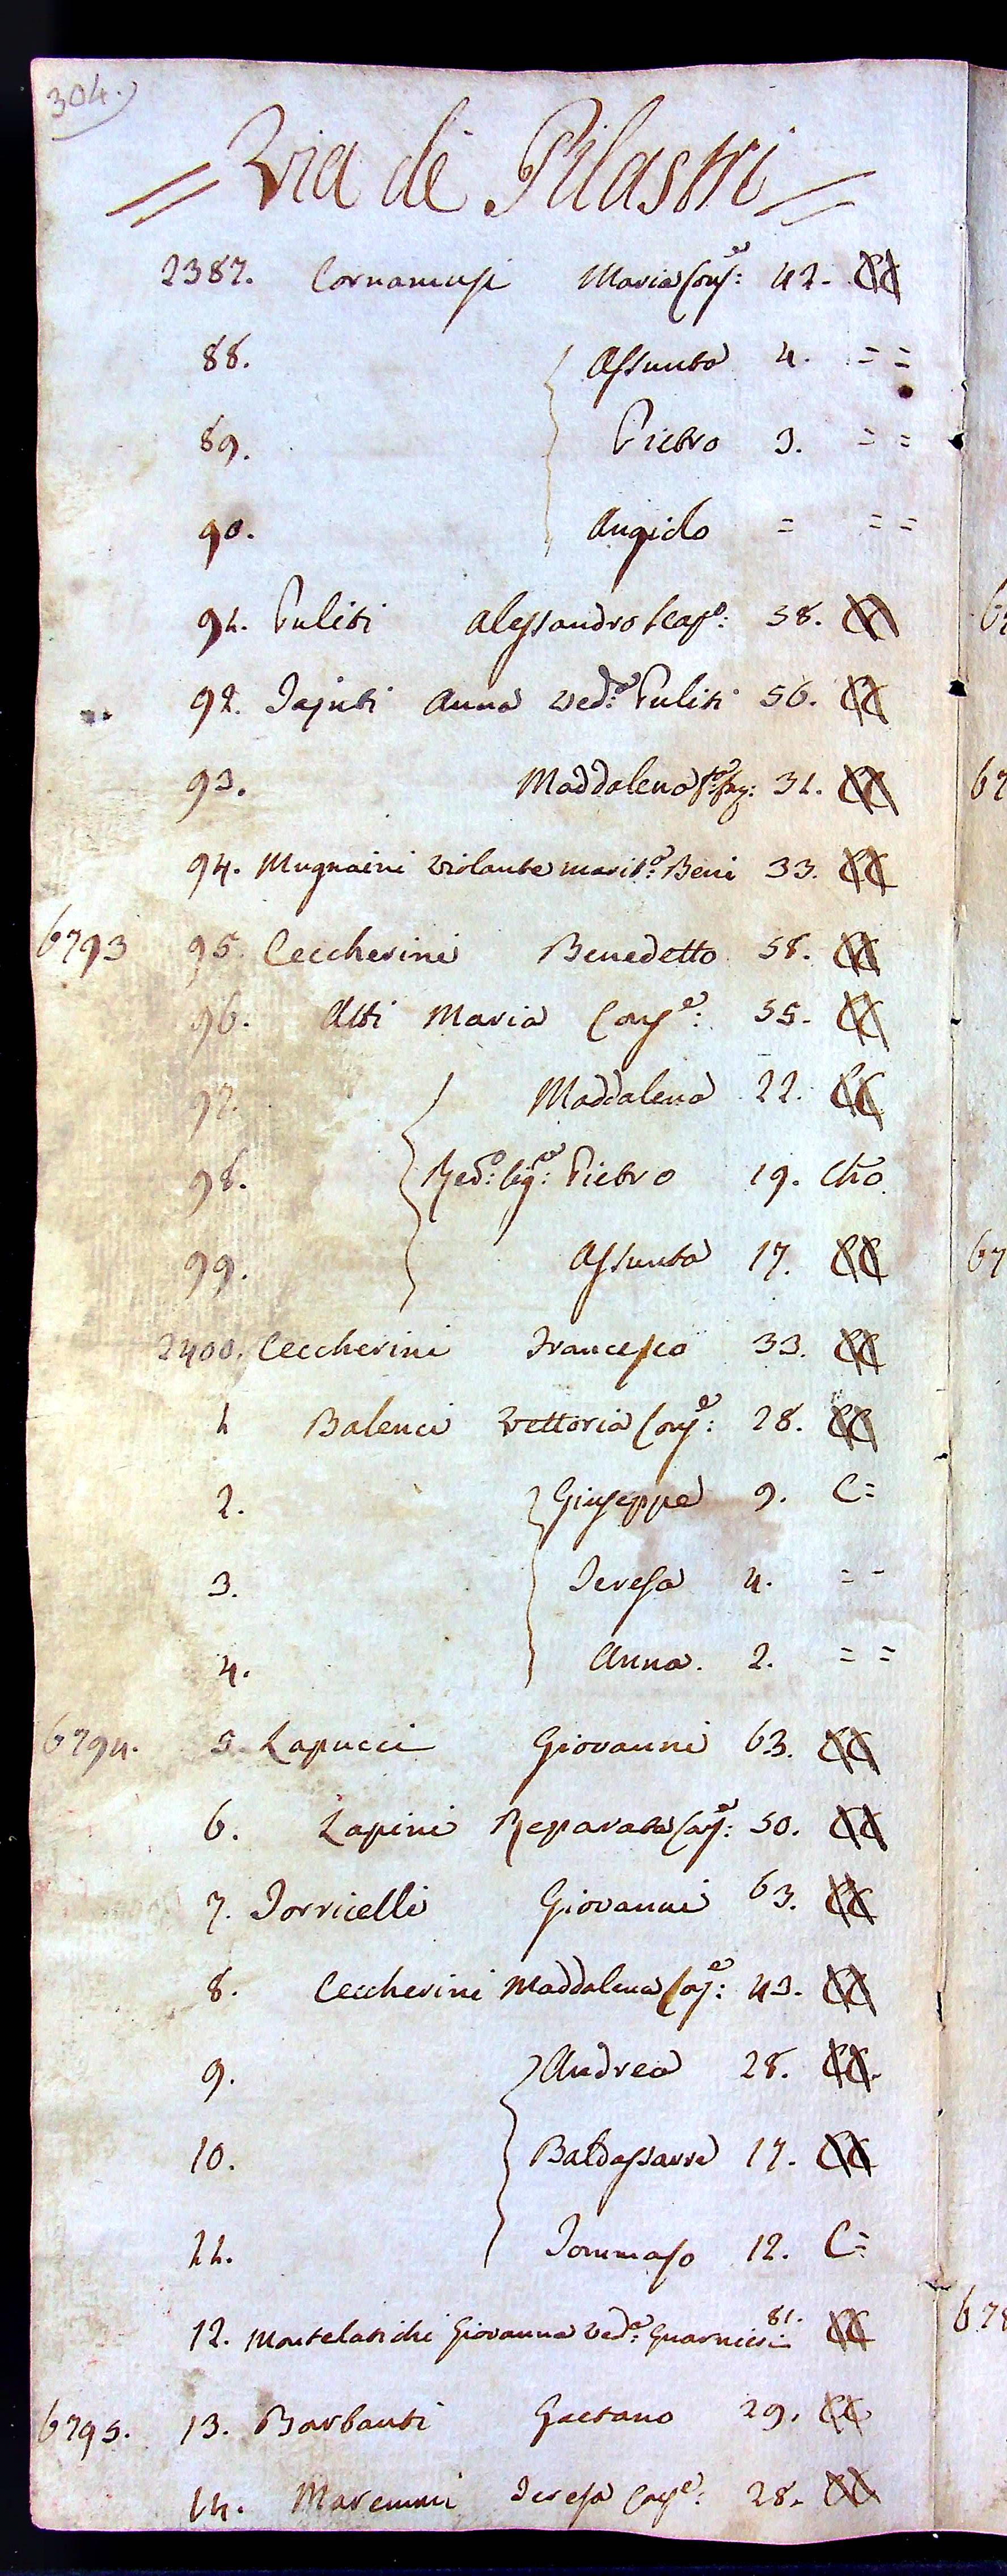 304.
= Via de Pilastri =
2387. Cornamusi Maria Conj:e 42. CC
88. Assunta 4. = =
89. Pietro 3. = =
90. Angiolo = = =
91. Puliti Alessandro Scap:o 38. CC
92. Anna Ved:a Puliti 56. CC
93. Maddalena 31. CC
94. Mugnaini Violante marit:a Beni 33. CC
6793 95. Ceccherini Benedetto 58. CC
96. Atti Maria Conj:e 55. CC
97. Maddalena 22. CC
98. Pietro 19. Cho
99. Assunta 17. CC
2400. Ceccherini Francesco 33. CC
1 Balenci Vettoria Conj:e 28. CC
2. Giuseppe 9. C=
3. Teresa 4. = =
4. Anna. 2. = =
6794. 5. Lapucci Giovanni 63. CC
6. Lapini Reparata Conj:e 50. CC
7. Torricelli Giovanni 63. CC
8. Ceccherini Maddalena Conj:e 43. CC
9. Andrea 28. CC.
10. Baldassarre 17. CC
11. Tommaso 12. C=
12. Montelatichi Giovanna Ved:a Guarnieri 81. CC
6795. 13. Barbanti Gaetano 29. CC
14. Maremmi Teresa Conj:e 28. CC